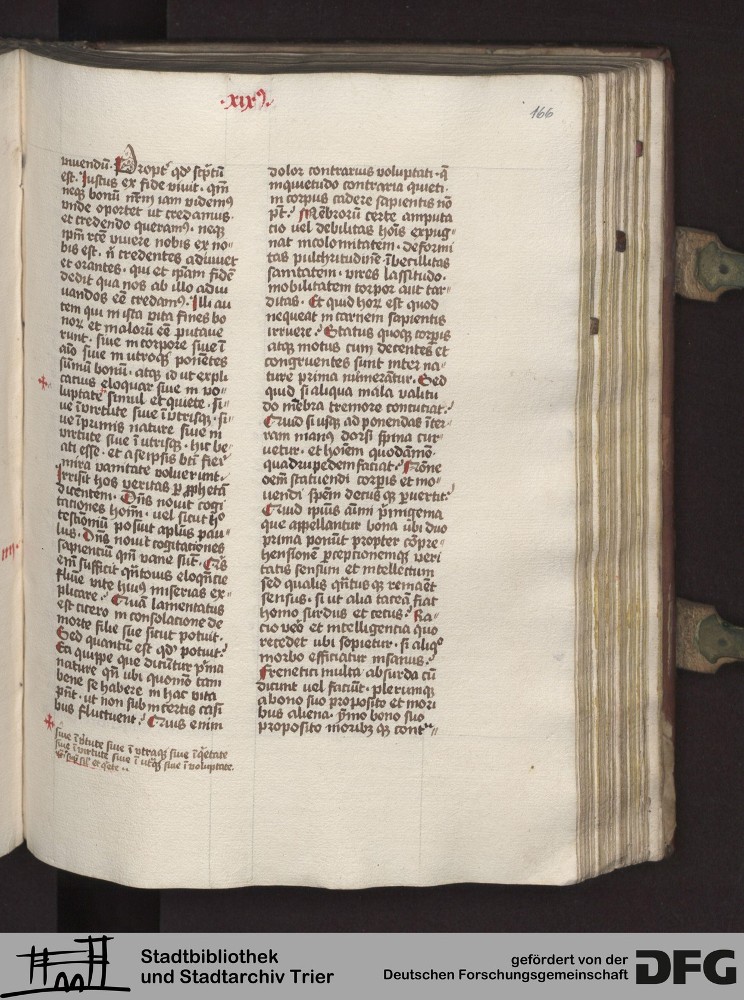 ·xix⁹·
166
viuendū. Propt' qd' scptū
est. Iustus ex fide viuit. qm̄
neq; bonū nrm̄ iam videm⁹
vnde oportet ut credamus.
et credendo queram⁹. neq;
ipm̄ rcē viuere nobis ex no-
bis est. n̄ credentes adiuuet
et orantes. qui et ipam fidē
dedit qua nos ab illo adiu
uandos eē credam⁹. Illi au
tem qui in ista vita fines bo
nor et malorū eē putaue
runt. siue in corpore siue ī
aīo siue in utroq; ponētes
sūmū bonū. atq; id ut expli
catius eloquar siue in vo-
luptate simul et quiete. si-
ue ī virtute siue ī utrisq;. si-
ue ī primis nature siue in
virtute siue ī utrisq;. hic be-
ati esse. et a seipsis bti fieri
mira vanitate voluerunt.
Irrisit hos veritas p prophetā
dicentem. Dn̄s nouit cogi
tationes hoīm. vel sicut h⁰
testiōmū posuit aplus pau-
lus. Dn̄s nouit cogitationes
sapientiū qm̄ vane sūt. Quis
em̄ sufficit qn̄touis eloqn̄tie
flumine vite hui⁹ miserias ex-
plicare? Quā lamentatus
est cicero in consolatione de
morte filie sue sicut potuit.
Sed quantū est qd' potuit?
Ea quippe que dicūtur p'ma
nature qn̄ ubi quomō tam
bene se habere in hac vita
pn̄t. ut non sub incertis casi
bus fluctuent? Quis enim
siue ī v'tute siue ī utraq; siue ī q'etate
siue ī virtute siue ī utq; siue ī voluptate.
dolor contrarius voluptati. q̄
inquietudo contraria quieti.
in corpus cadere sapientis nō
pt? Mēbrorū certe amputa
cio uel debilitas hoīs expug-
nat incolomitatem. deformi
tas pulchritudinē. ībecillitas
sanitatem. vires lassitudo.
mobilitatem torpor aut tar-
ditas. Et quid hor est quod
nequeat in carnem sapientis
irruere? Status quoq; corpis
atq; motus cum decentes et
congruentes sunt inter na-
ture prima numerātur. Sed
quid si aliqua mala valitu
do mēbra tremore concutiat?
Quid si usq; ad ponendas ī ter-
ram manus dorsi spina cur-
uetur. et hoīem quodāmō
quadrupedem faciat? Nōne
oēm statuendi corpis et mo-
uendi spēm decus q; peruertit?
Quid ipius aīmi p'migema
que appellantur bona ubi duo
prima ponūt propter cōpre-
hensionē perceptionemq; veri
tatis sensum et intellectum
sed qualis qn̄tus q; remaēt
sensus. si ut alia taceā fiat
homo surdus et cecus? Ra-
cio vero et intelligencia quo
recedet ubi sopietur. si aliq⁰
morbo efficiatur insanus?
Frenetici multa absurda cū
dicunt uel faciūt. plerumq;
a bono suo proposito et mori
bus aliena. ymo bono suo
proposito morib; q; cont"-
Stadtbibliothek
und Stadtarchiv Trier
gefördert von der
Deutschen Forschungsgemeinschaft
DFG